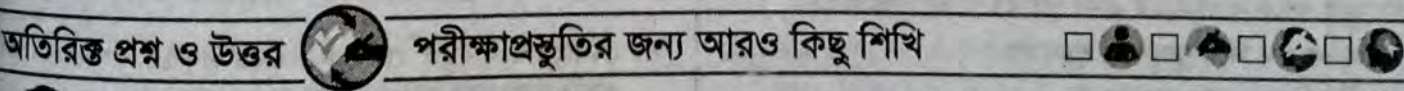 অতিরিক্ত প্রশ্ন ও উত্তর পরীক্ষাপ্রস্তুতির জন্য আরও কিছু শিখি